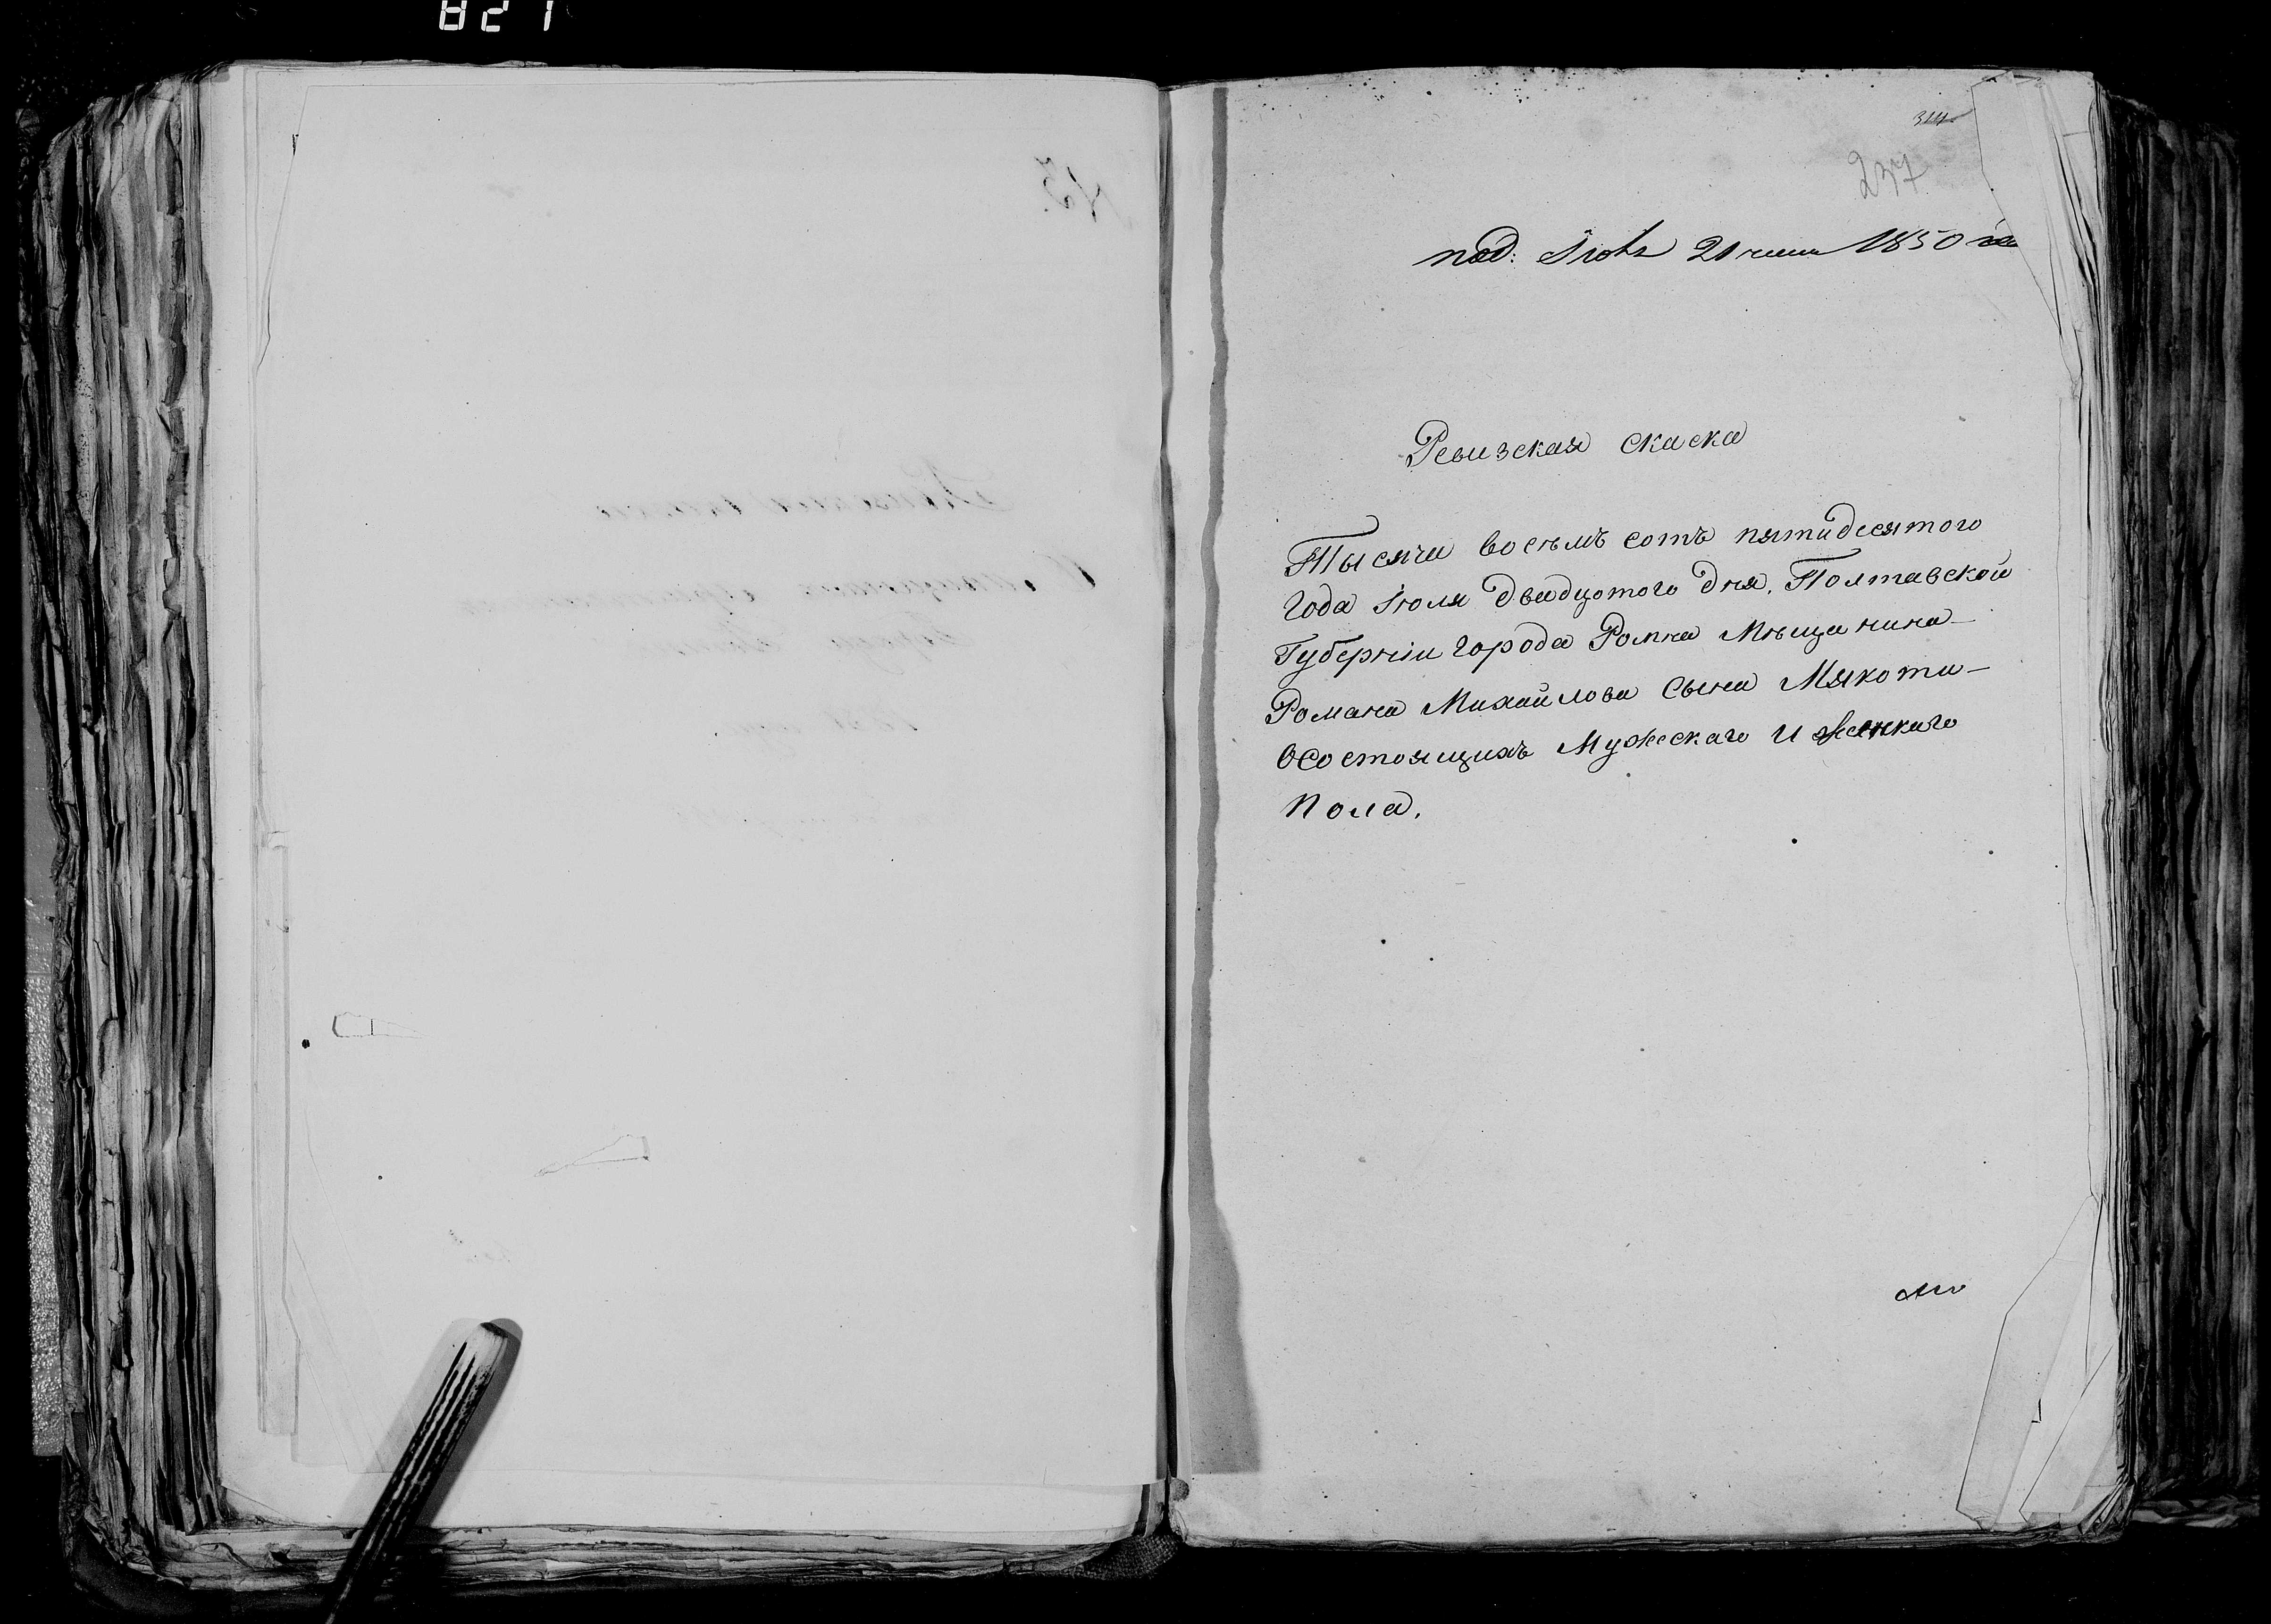 821
314
237
под: Іюля 21 числа 1850 го
Ревизская скаска
Тысяча восемъ сотъ пятидесятого
Года Іюля двадцотого дня, Полтавской
Губерніи Города Ромна Мѣщанина
Романа Михайлова Сына Мякоти
Осостоящихъ Мужескаго И женскаго
Пола.